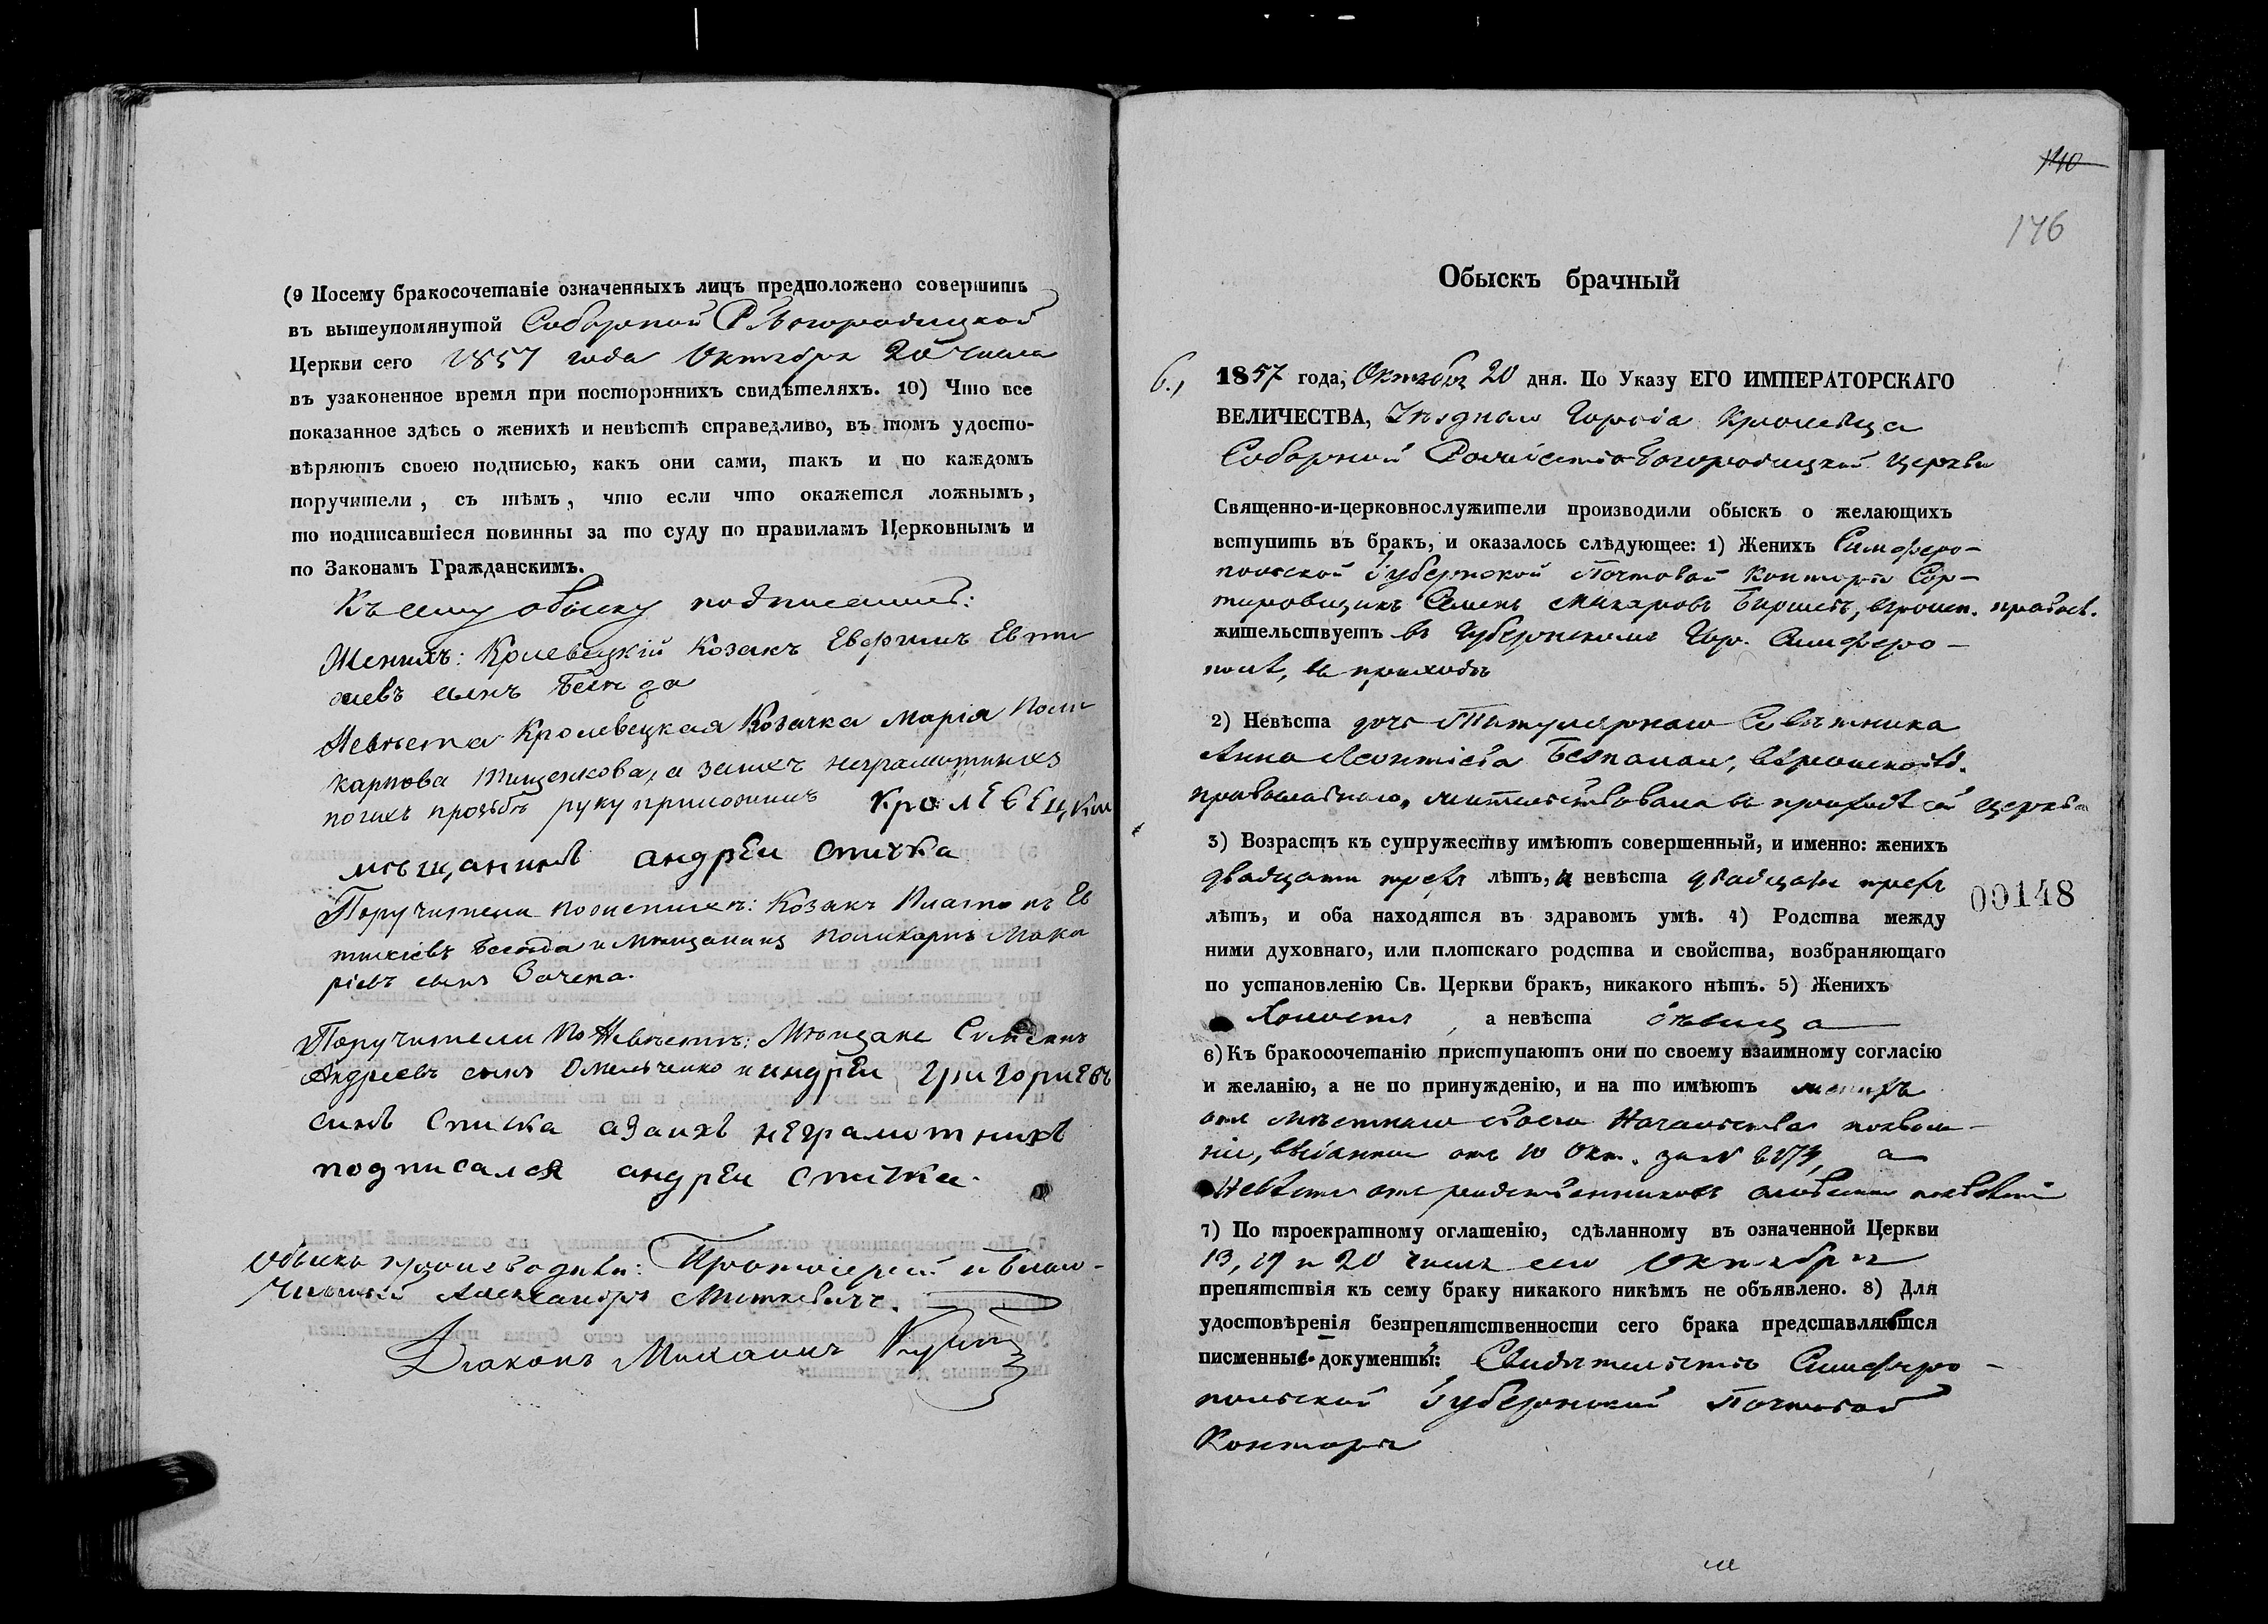 (9 Посему бракосочетаніе означенныхъ лицъ предположено совершить
въ вышеупомянутой Соборной Р. Богородицкой
Церкви сего 1857 года Октября 20 числа
въ узаконенное время при постороннихъ свидѣтеляхъ. 10) Что все
показанное здѣсь о женихѣ и невѣстѣ справедливо, въ томъ удосто-
вѣряютъ своею подписью, какъ они сами, такъ и по каждомъ
поручители, съ тѣмъ, что если что окажется ложнымъ,
то подписавшіеся повинны за то суду по правиламъ Церковнымъ и
по Законамъ Гражданскимъ.
Къ сему обыску подписались:
Женихъ: Кролевецкій Козакъ Евфимъ Евти
сынъ
Невѣста Кролевецкая Козачка Марія Поли
карпова Тищенкова, а за нихъ неграмотныхъ
по ихъ прозьбѣ руку приложилъ Кролевецкій
мѣщанинъ андрей Спичка
Поручители по женихѣ: Козакъ Платонъ Ев
и Мѣщанинъ Поликарпъ Мака
ріевъ сынъ
Поручители По Невѣстѣ: Мѣщане
Андреевъ сынъ Омельченко и андрей григориевъ
синъ Спичка а за ихъ неграмотнихъ
подписался андрей Спичка.
Обыскъ производили: Протоіерей и Благо-
чинный Александръ Миткевичъ.
Діаконъ Михаилъ
140
146
Обыскъ брачный
6.,
1857 года, Октября 20 дня. По Указу ЕГО ИМПЕРАТОРСКАГО
ВЕЛИЧЕСТВА, Уѣзднаго Города Кролевца
Соборной Рождество Богородицкой церкви
Священно-и-церковнослужители производили обыскъ о желающихъ
вступить въ бракъ, и оказалось слѣдующее: 1) Женихъ Симферо-
польской Губернской Почтовой Конторы Сор-
тировщикъ Семенъ Макаровъ вѣроисп. правосл.
жительствуетъ въ Губернскомъ Гор. Симферо-
полѣ, въ приходѣ
2) Невѣста дочь Титулярнаго Совѣтника
Анна Леонтіева
православнаго, жительствовала въ приходѣ сей церкви
3) Возрастъ къ супружеству имѣютъ совершенный, и именно: женихъ
двадцати трехъ лѣтъ, и невѣста двадцати трехъ
лѣтъ, и оба находятся въ здравомъ умѣ. 4) Родства между
ними духовнаго, или плотскаго родства и свойства, возбраняющаго
по установленію Св. Церкви бракъ, никакого нѣтъ. 5) Женихъ
Холостъ, а невѣста дѣвица
00148
6) Къ бракосочетанію приступаютъ они по своему взаимному согласію
и желанію, а не по принужденію, и на то имѣютъ женихъ
отъ мѣстнаго своего Начальства позволе-
ніе, отъ 10 Окт. за № а
Невѣста отъ родственниковъ
7) По троекратному оглашенію, сдѣланному въ означенной Церкви
13, 19 и 20 числъ сего Октября
препятствія къ сему браку никакого никѣмъ не объявлено. 8) Для
удостовѣренія безпрепятственности сего брака представляются
писменные документы: Свидѣтельство Симферо-
польской Губернской Почтовой
Конторы